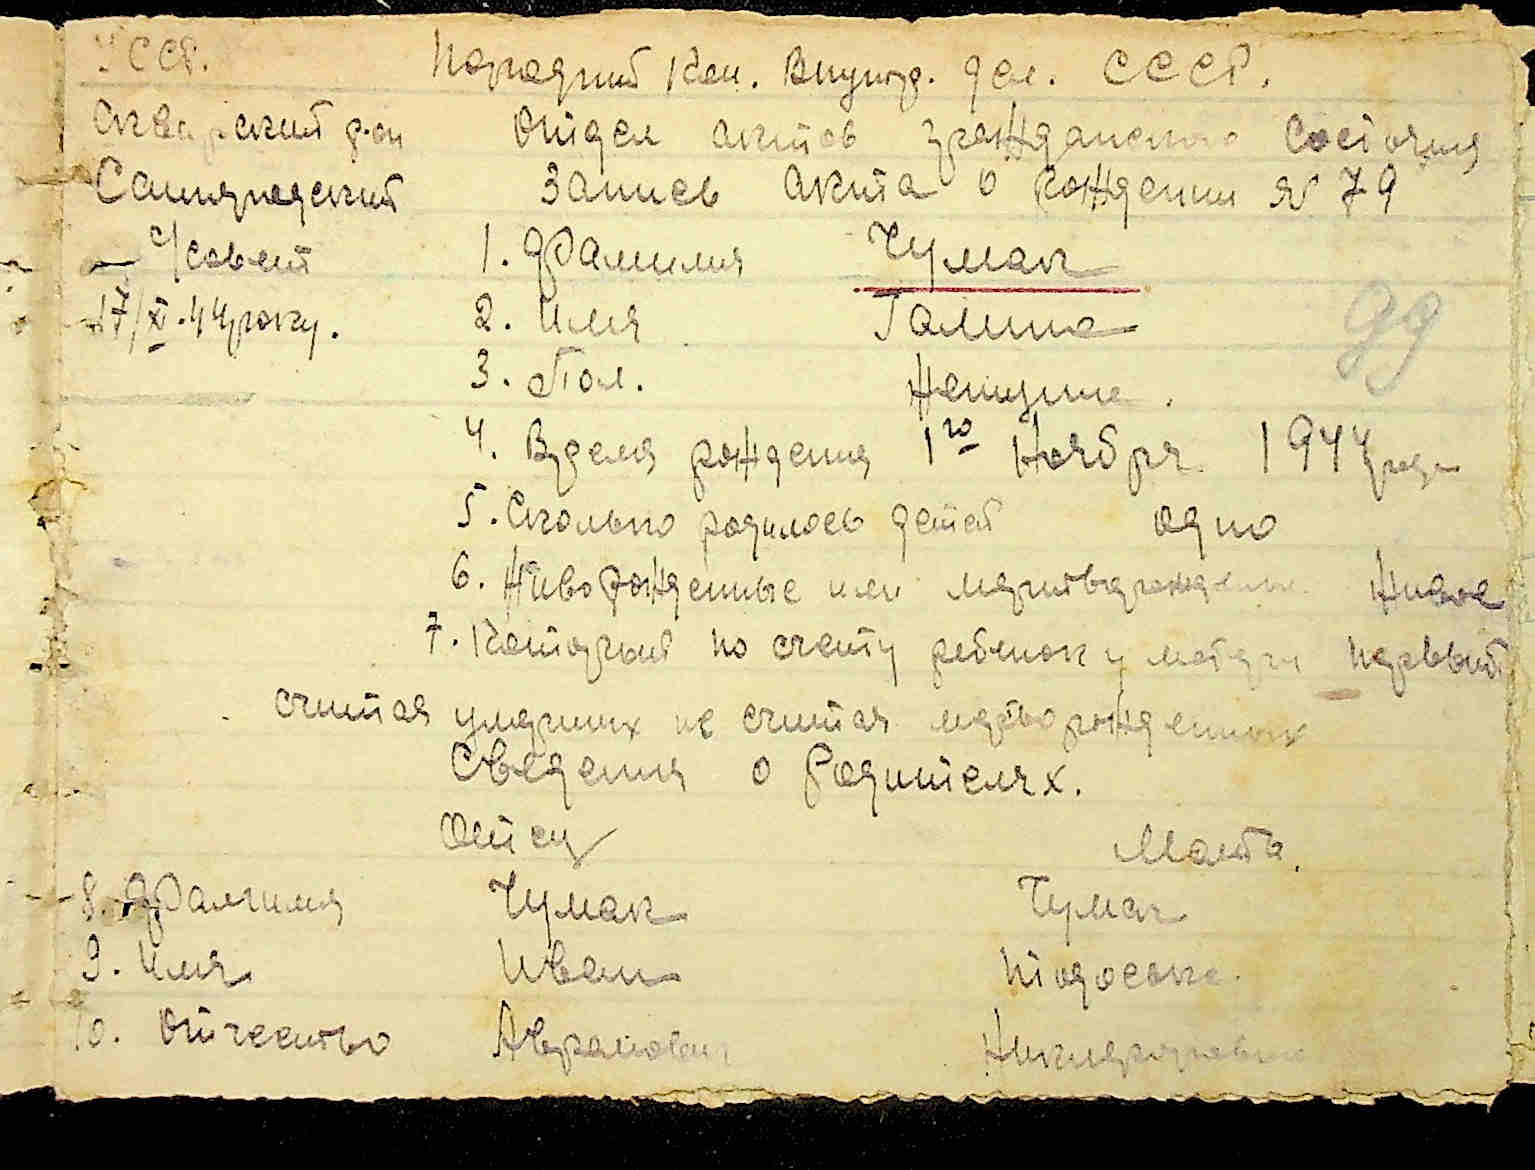 УССР. Народний Ком. Внутр. дел. СССР.
Сквирский р-он Отдел актов гражданского состояния
Самгородский Запись акта о рождении № 79
с/совет 1. Фамилия Чумак
17/XI.44 року. 2. Имя Галина
99
3. Пол. Женщина.
4. Время рождения 1го Ноября 1944 года
5. Сколько родилось детей одно
6. Живорожденные или мертворожденные Живое
7. Который по счету ребенок у матери первый
считая умерших не считая мертворожденных
Сведения о Родителях.
Отец Мать.
8. Фамилия Чумак Чумак
9. Имя Иван
10. Отчество Аврамович Никифоровна